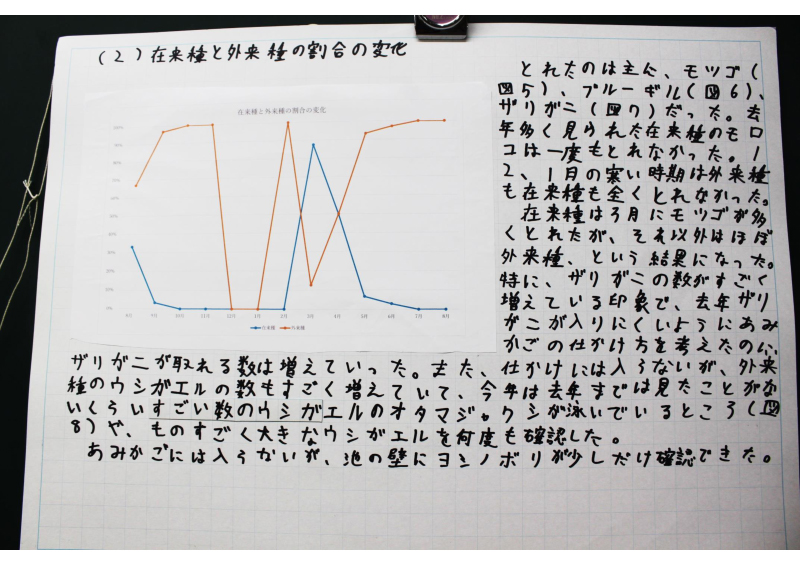 (2)在来種と外来種の割合の変化
在来種と外来種の割合の変化
100%
90%
80%
70%
60%
50%
40%
30%
20%
10%
0%
9月 10月 11月 12月 1月 2月 3月 5月 6月 7月 8月
在来種 外来種
とれたのは主に、モツゴ(
図5)、ブルーギル(図6)、
ザリガニ(図7)だった。去
年多く見られた在来種のモロ
コは一度もとれなかった。1
2、1月の寒い時期は外来種
も在来種も全くとれなかった。
在来種は3月にモツゴが多
くとれたが、それ以外はほぼ
外来種、という結果になった。
特に、ザリガニの数がすごく
増えている印象で、去年ザリ
ガニが入りにくいようにあみ
かごの仕かけ方を考えたのに、
ザリガニが取れる数は増えていった。また、仕かけには入らないが、外来
種のウシガエルの数もすごく増えていて、今年は去年までは見たことがな
いくらいすごい数のウシガエルのオタマジャクシが泳いでいるところ(図
8)や、ものすごく大きなウシガエルを何度も確認した。
あみかごには入らないが、池の壁にヨシノボリが少しだけ確認できた。